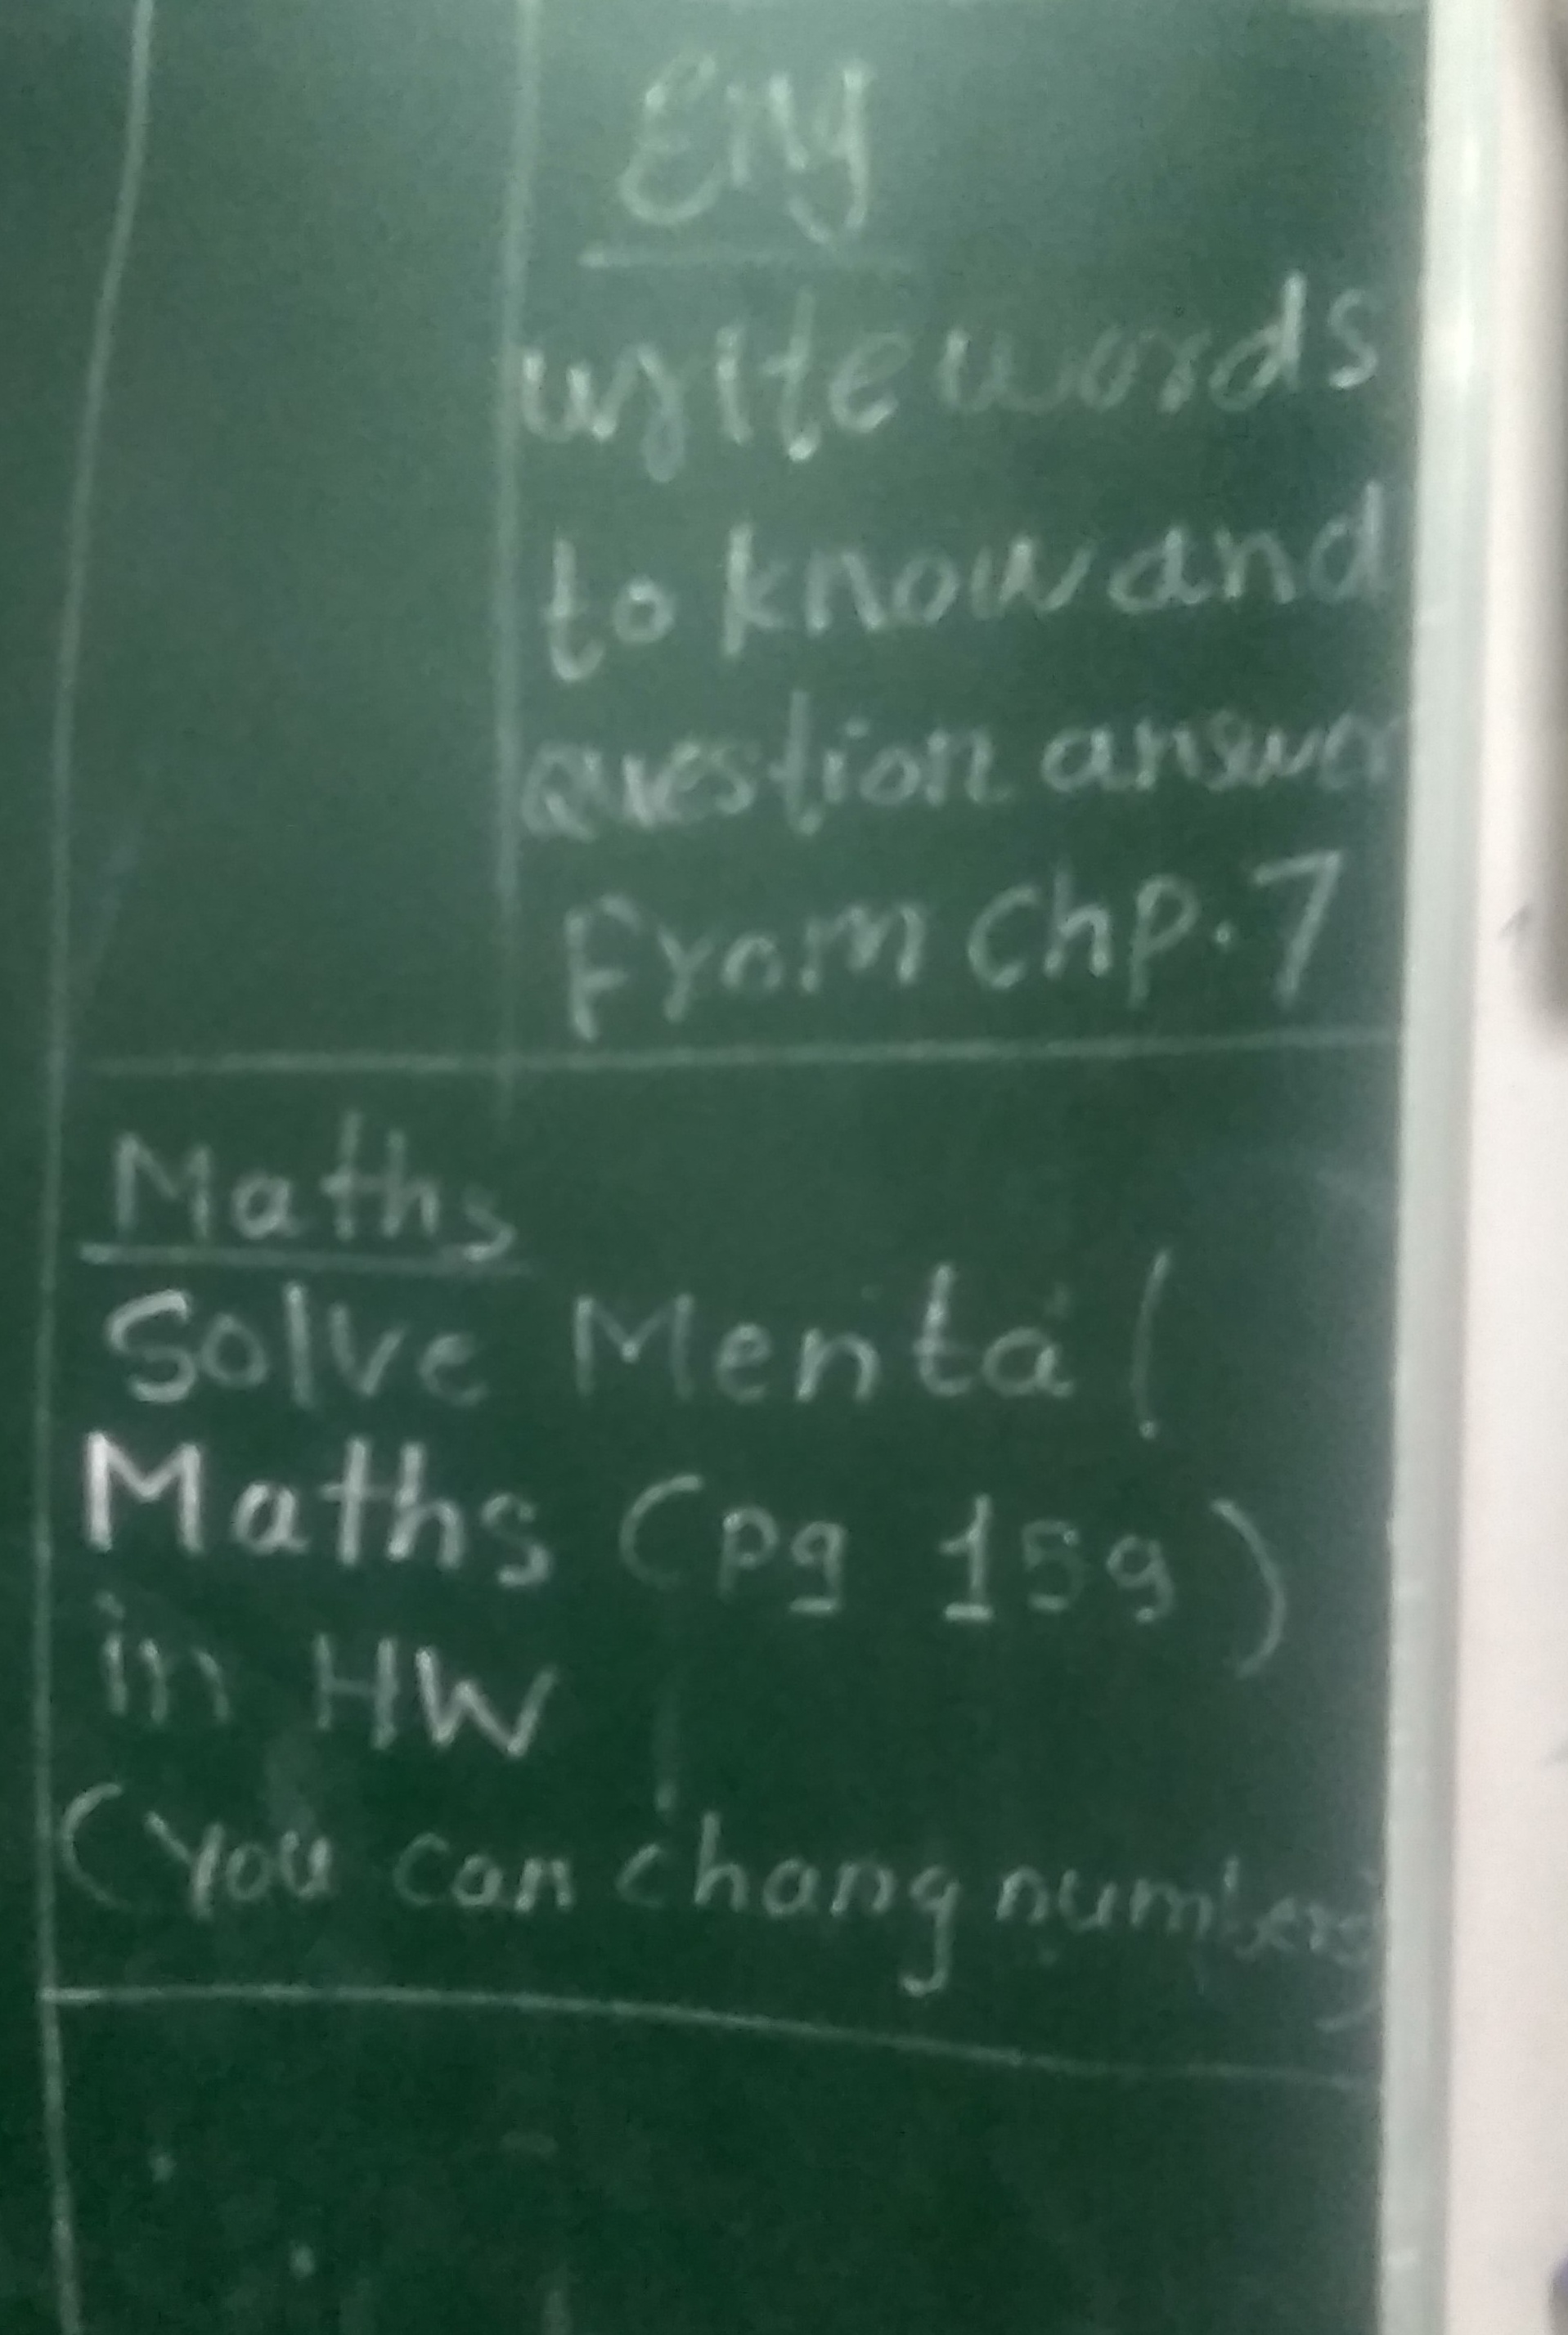 Eng
write words
to know and
question answer
From Chp. 7
Maths
Solve Mental
Maths (pg 159)
in HW
(You can chang numbers)